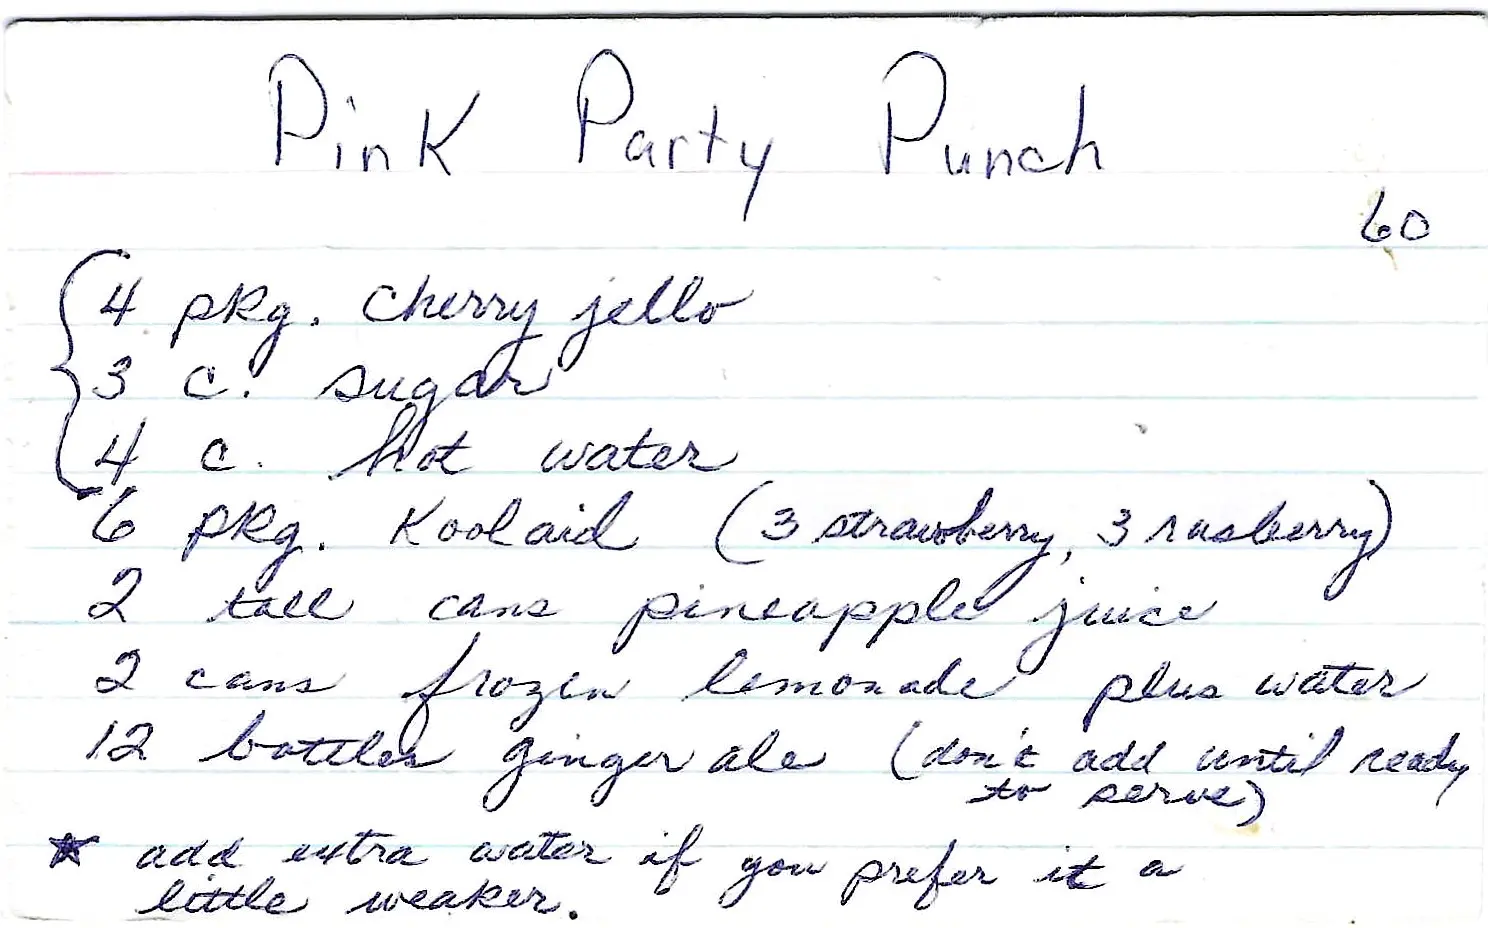 Pink Party Punch
60
4 pkg. cherry jello
3 c. sugar
4 c. hot water
6 pkg. Koolaid (3 strawberry, 3 rasberry)
2 tall cans pineapple juice
2 cans frozen lemonade plus water
12 bottles ginger ale (don't add until ready
to serve)
* add extra water if you prefer it a
little weaker.